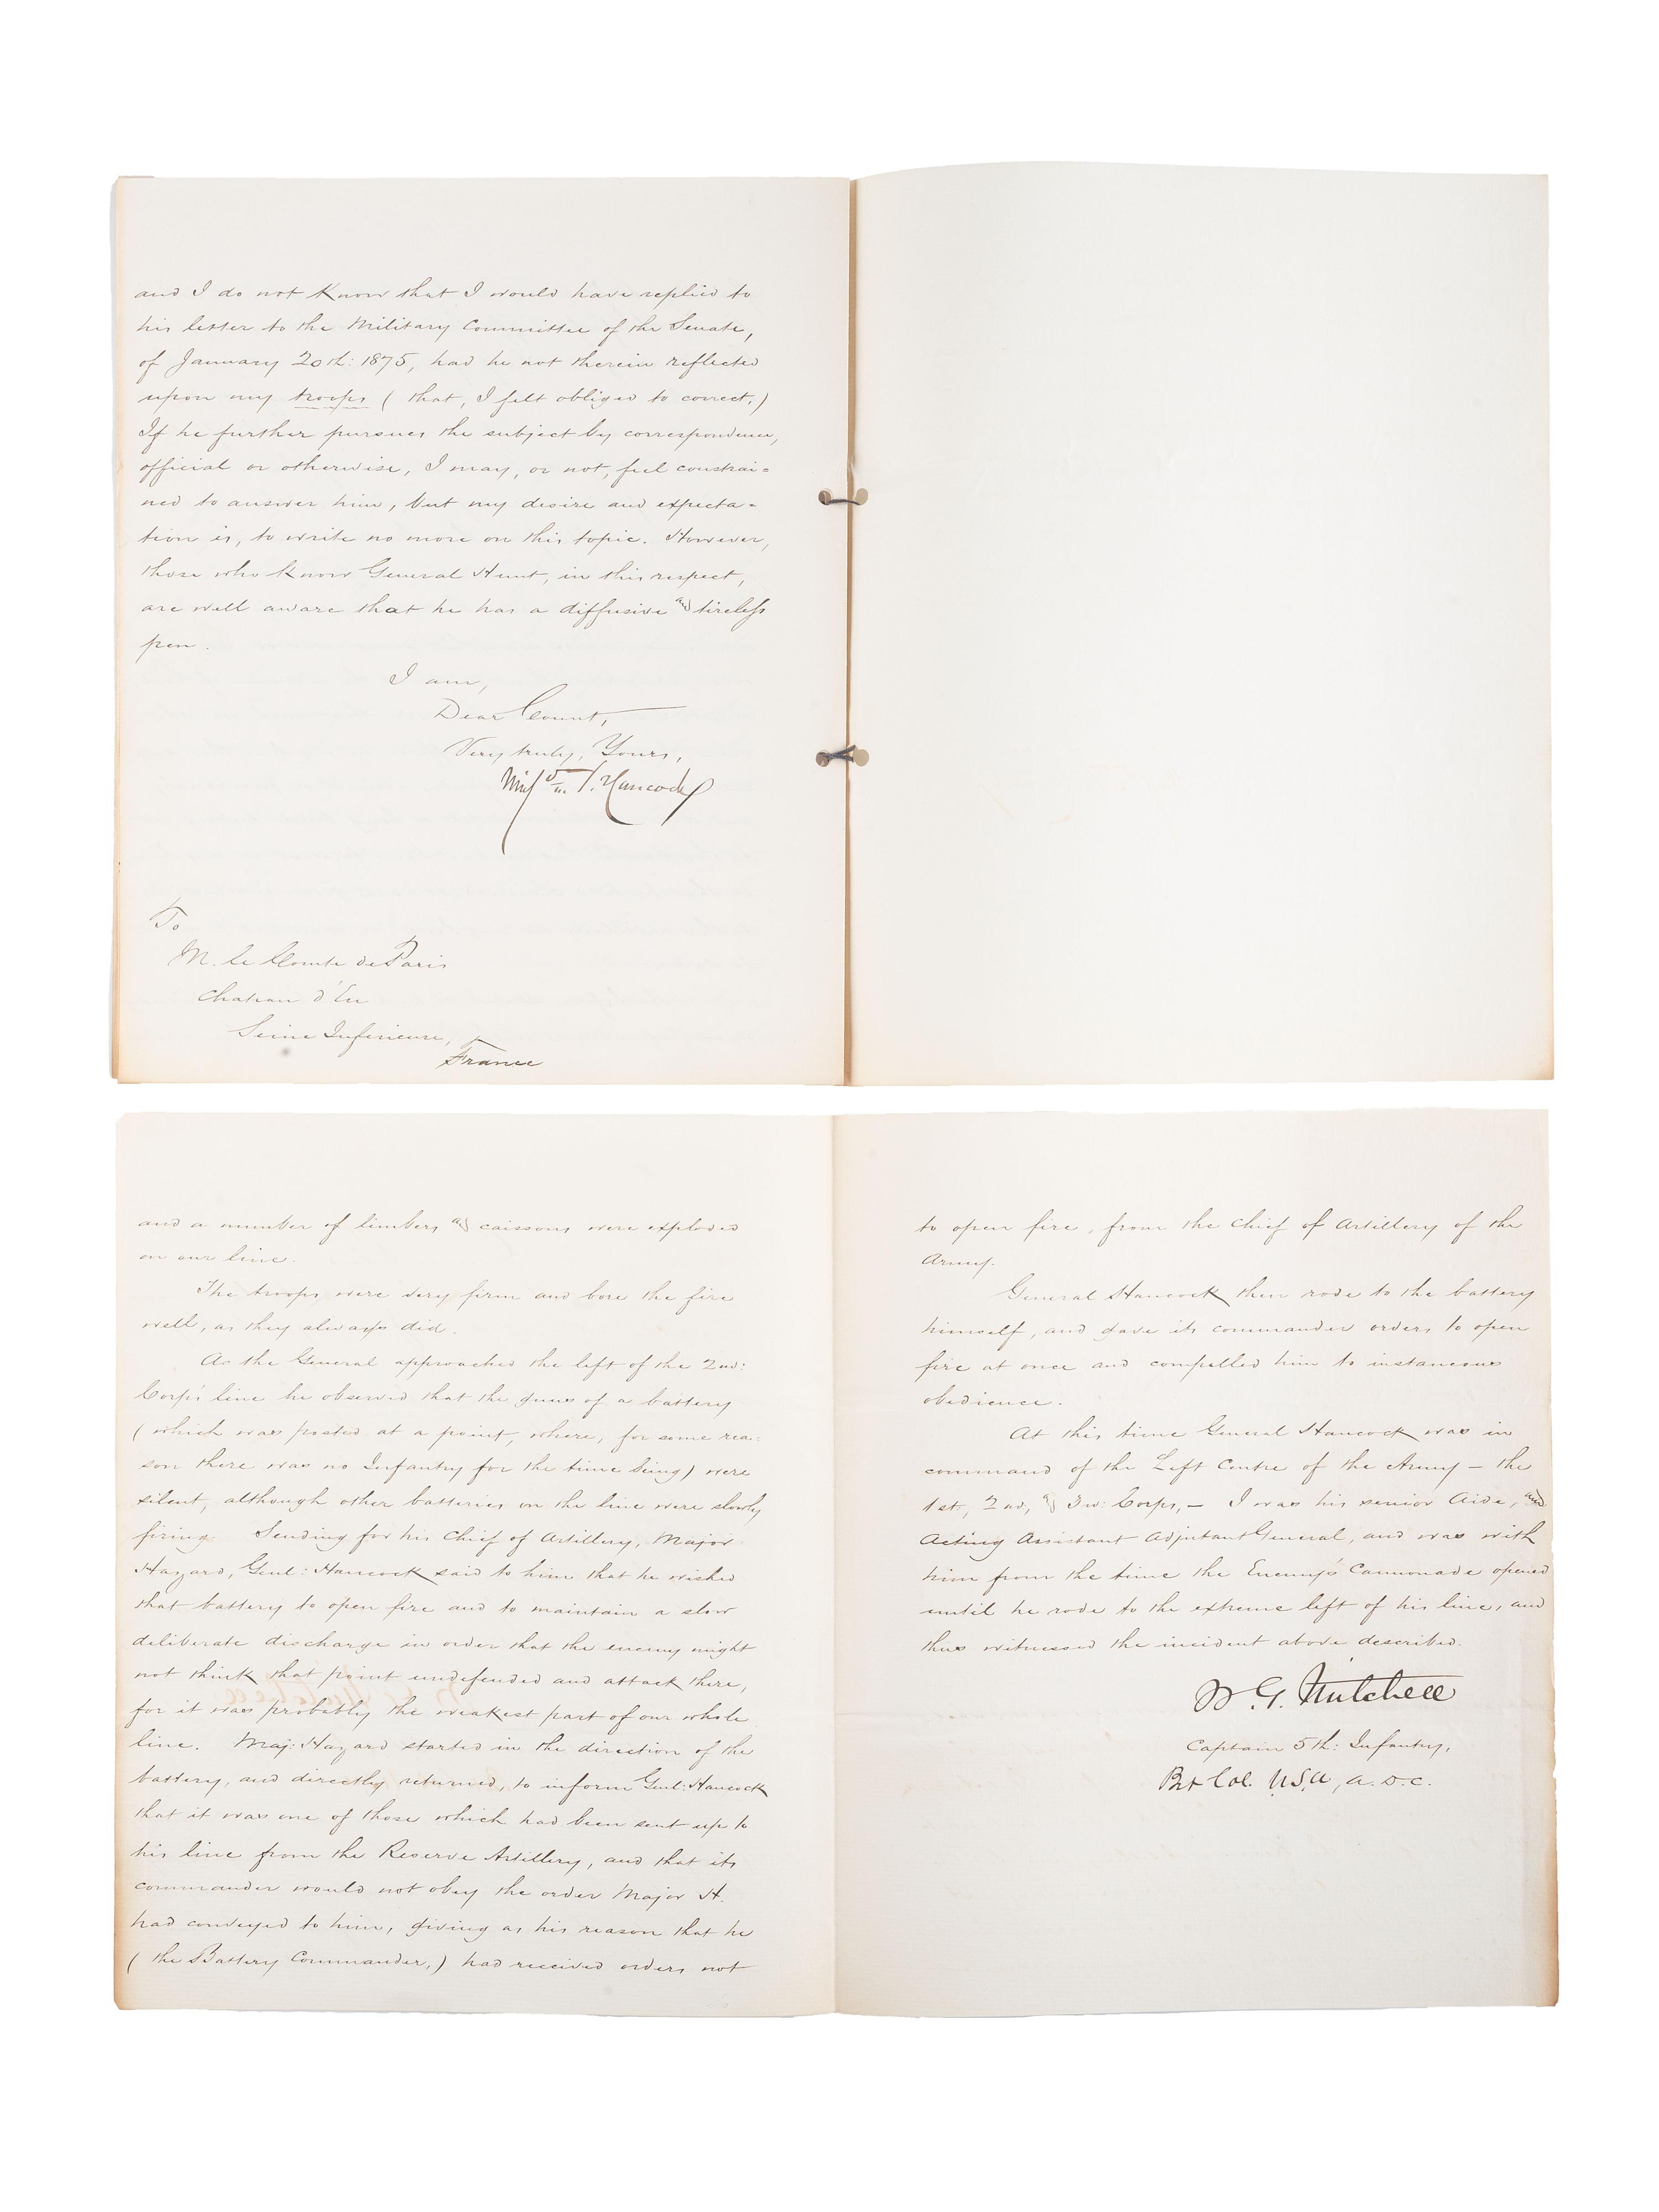 and I do not know that I would have replied to
his letter to the Military Committee of the Senate,
of January 20th: 1875, had he not therein reflected
upon my troops ( that, I felt obliged to correct.)
If he further pursues the subject by correspondence,
official or otherwise, I may, or not, feel constrai=
ned to answer him, but my desire and expecta=
tion is, to write no more on this topic. However,
those who know General Hunt, in this respect,
are well aware that he has a diffusive and tireless
pen.
I am,
Dear Count,
Very truly, Yours,
Winf'd S. Hancock
To
M. le Comte de Paris
Chateau d'Eu
Seine Inferieure,
France
and a number of limbers and caissons were exploded
on our line.
The troops were very firm and bore the fire
well, as they always did.
As the General approached the left of the 2nd:
Corps line he observed that the guns of a battery
( which was posted at a point, where, for some rea=
son there was no Infantry for the time being) were
silent, although other batteries on the line were slowly
firing. Sending for his Chief of Artillery, Major
Hazard, Genl: Hancock said to him that he wished
that battery to open fire and to maintain a slow
deliberate discharge in order that the enemy might
not think that point undefended and attack there,
for it was probably the weakest part of our whole
line. Maj: Hazard started in the direction of the
battery, and directly returned, to inform Genl: Hancock
that it was one of those which had been sent up to
his line from the Reserve Artillery, and that its
commander would not obey the order Major H.
had conveyed to him, giving as his reason that he
( the Battery Commander,) had received orders not
to open fire, from the Chief of Artillery of the
Army.
General Hancock then rode to the battery
himself, and gave its commander orders to open
fire at once and compelled him to instaneous
obedience.
At this time General Hancock was in
command of the Left Centre of the Army — the
1st, 2nd, and 3rd: Corps, — I was his senior Aide, and
Acting Assistant Adjutant General, and was with
him from the time the Enemy's Cannonade opened
until he rode to the extreme left of his line, and
thus witnessed the incident above described.
W. G. Mitchell
Captain 5th: Infantry,
Bvt Col. U.S.A, A.D.C.